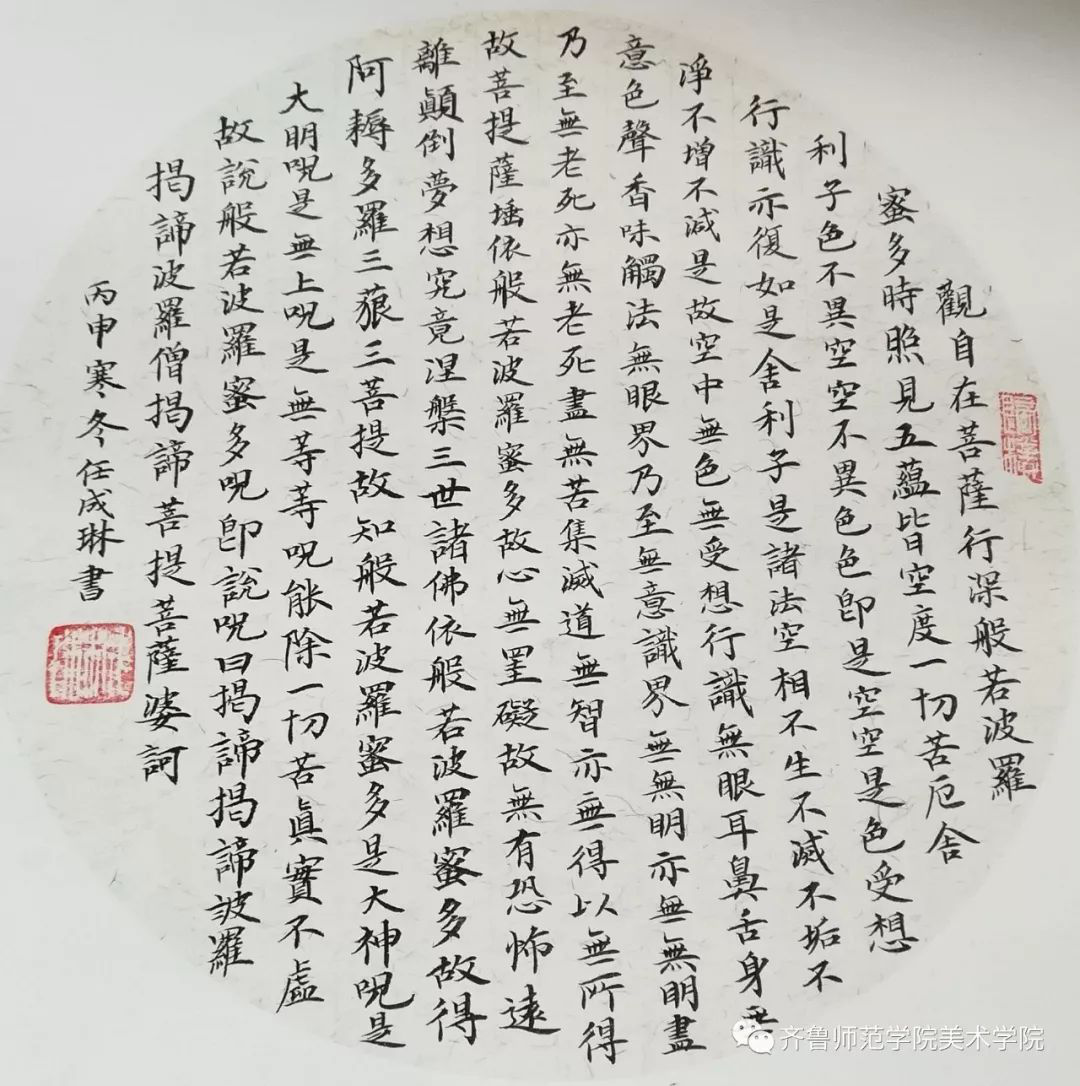 觀自在菩薩行深般若波羅
蜜多時照見五蘊皆空度一切苦厄舍
利子色不異空空不異色色卽是空空是色受想
行識亦復如是舍利子是諸法空相不生不滅不垢不
淨不增不減是故空中無色無受想行識無眼耳鼻舌身無
意色聲香味觸法無眼界乃至無意識界無無明亦無無明盡
乃至無老死亦無老死盡無苦集滅道無智亦無得以無所得
故菩提薩埵依般若波羅蜜多故心無罣礙故無有恐怖遠
離顛倒夢想究竟涅槃三世諸佛依般若波羅蜜多故得
阿耨多羅三藐三菩提故知般若波羅蜜多是大神呪是
大明呪是無上呪是無等等呪能除一切苦眞實不虛
故說般若波羅蜜多呪卽說呪曰揭諦揭諦波羅
揭諦波羅僧揭諦菩提菩薩婆訶
丙申寒冬任成琳書
齐鲁师范学院美术学院